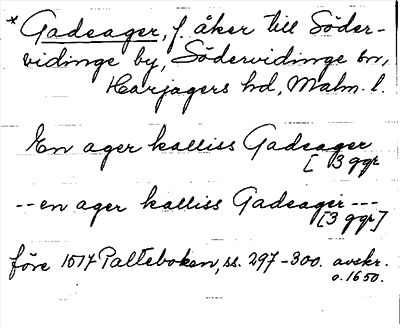 * Gadeager, f. åker till Söder-
vidinge by, Södervidinge sn,
Harjagers hd, Malm. l.
En ager kalliss Gadeager
[ 3 ggr
-- en ager kalliss Gadeager ---
[3 ggr]
före 1514 Palteboken, ss. 297-300. avskr.
o. 1650.